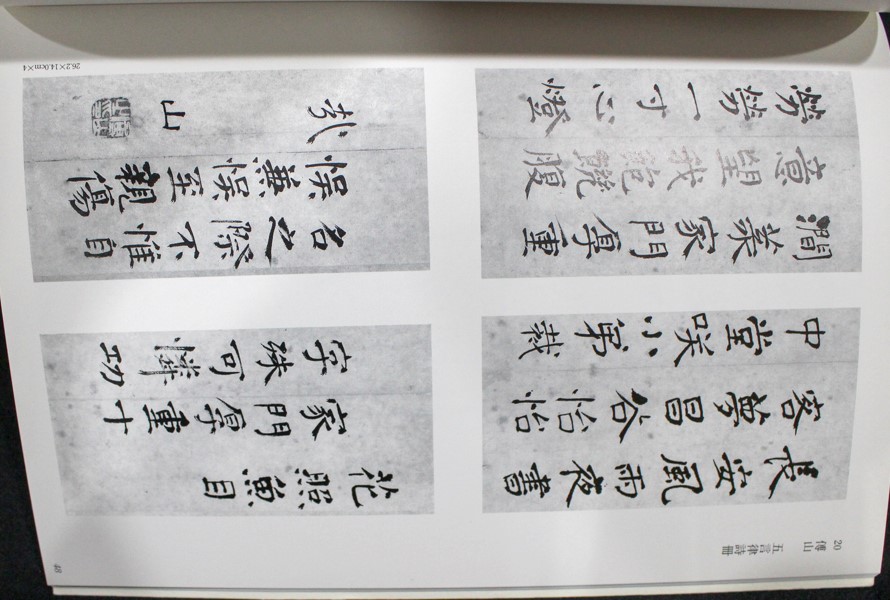 20 傅山 五言律詩冊
長安風雨夜書
客夢昌谷怡怡
中堂咲小弟裁
澗菉家門厚重
意望我飽饑腹
勞勞一寸心燈
花照魚目
家門厚重十
字殊可憐功
名之際不惟自
悞兼悞至親傷
哉 山
26.2×14.0cm×4
48